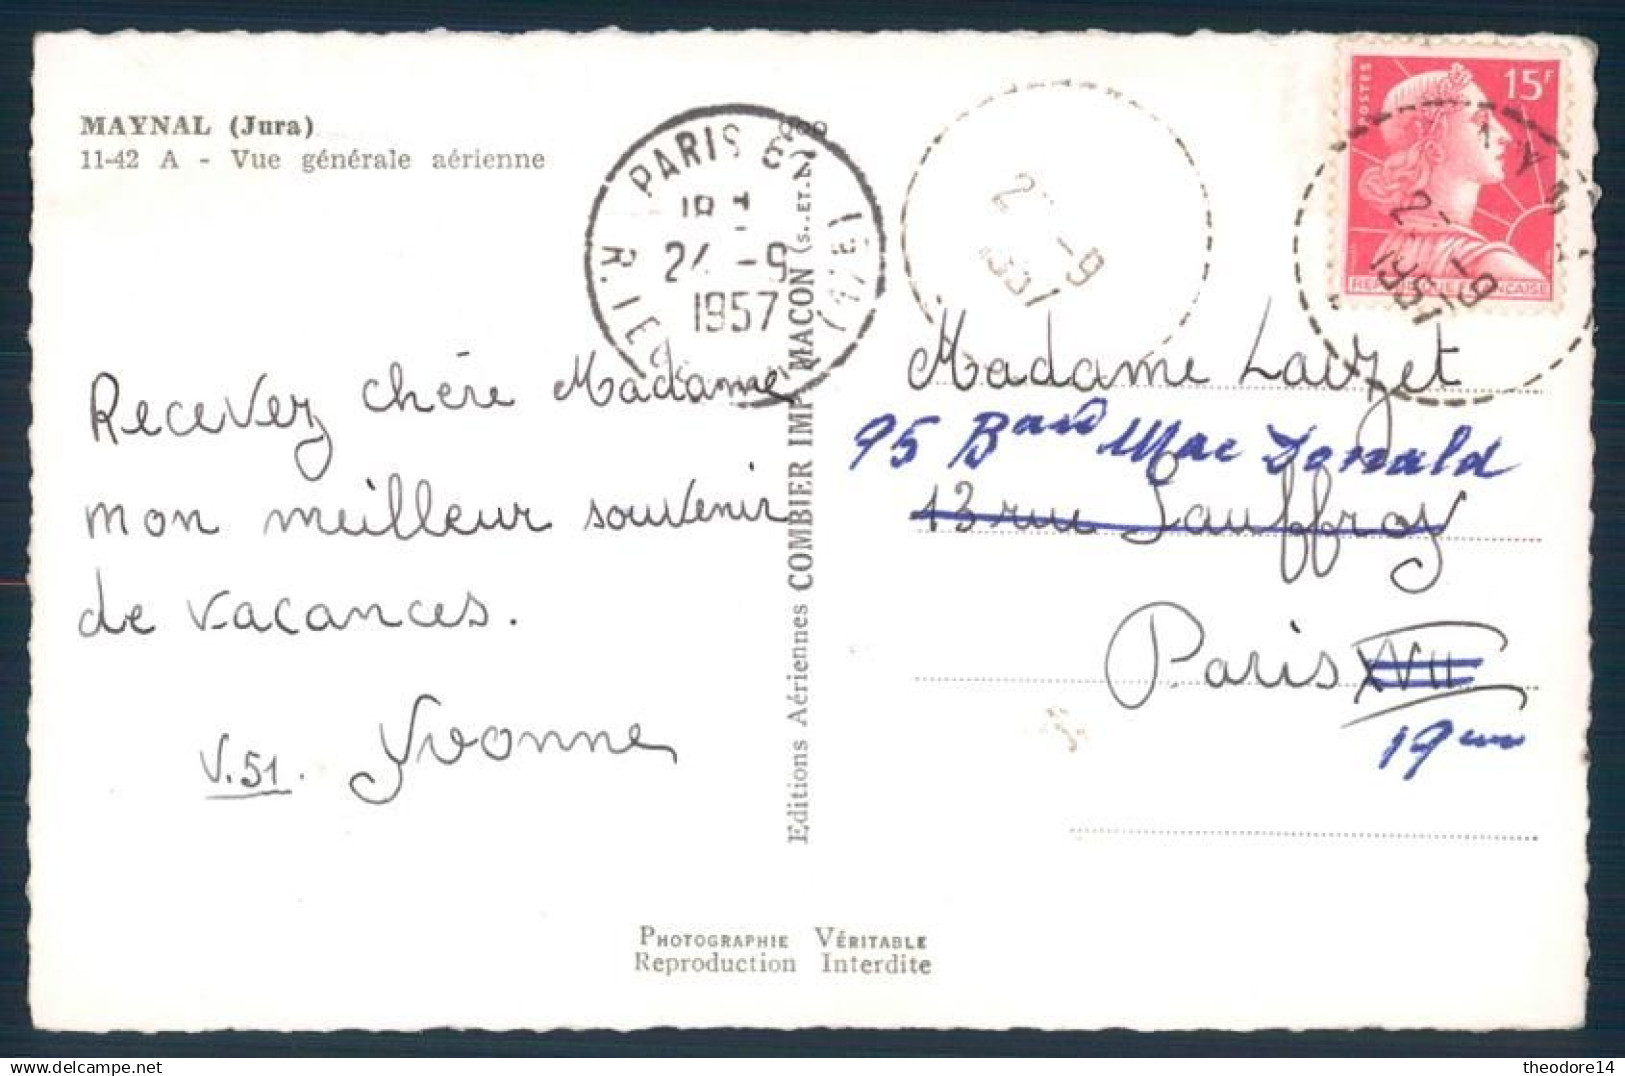 MAYNAL (Jura)
11-42 A - Vue générale aérienne
POSTES
15F
RÉPUBLIQUE FRANÇAISE
PARIS
24 -9
1957
-9
1957
-9
1957
Recevez chère Madame
mon meilleur souvenir
de vacances.
V.51. Yvonne
Editions Aériennes COMBIER IMP. MACON (S.-ET-L.)
Madame Lauzet
95 Bard Mac Donald
13 rue Jauffroy
Paris XVII
19eme
PHOTOGRAPHIE VÉRITABLE
Reproduction Interdite
theodore14